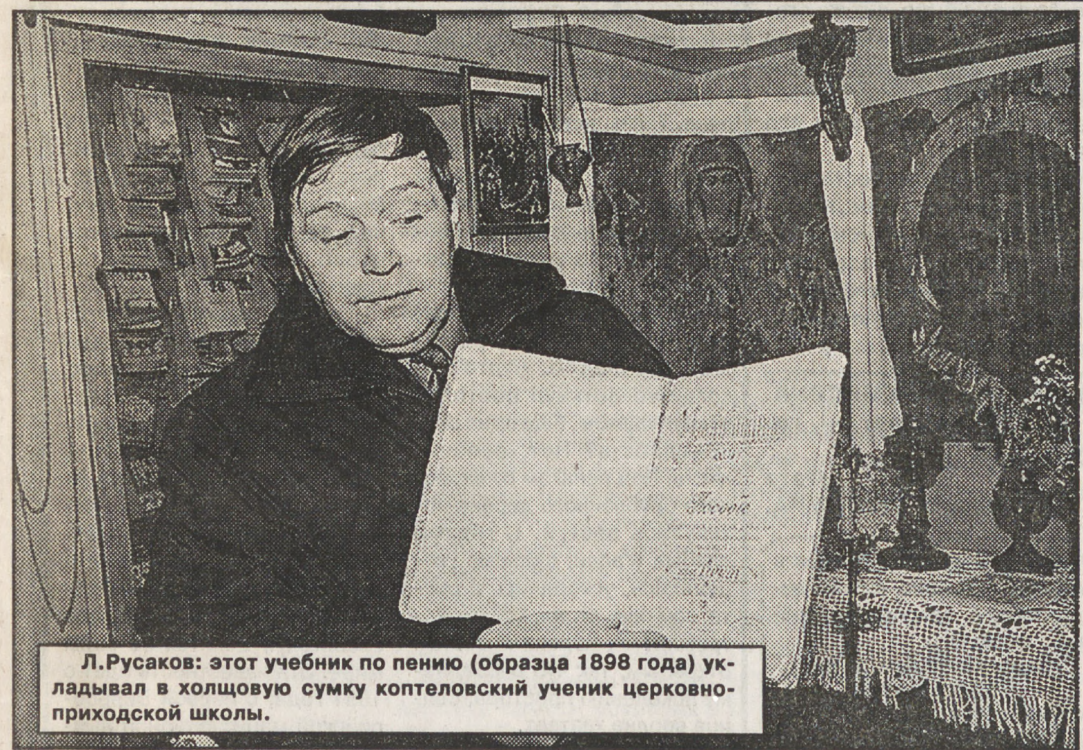 Пособіе
Л.Русаков: этот учебник по пению (образца 1898 года) ук-
ладывал в холщовую сумку коптеловский ученик церковно-
приходской школы.